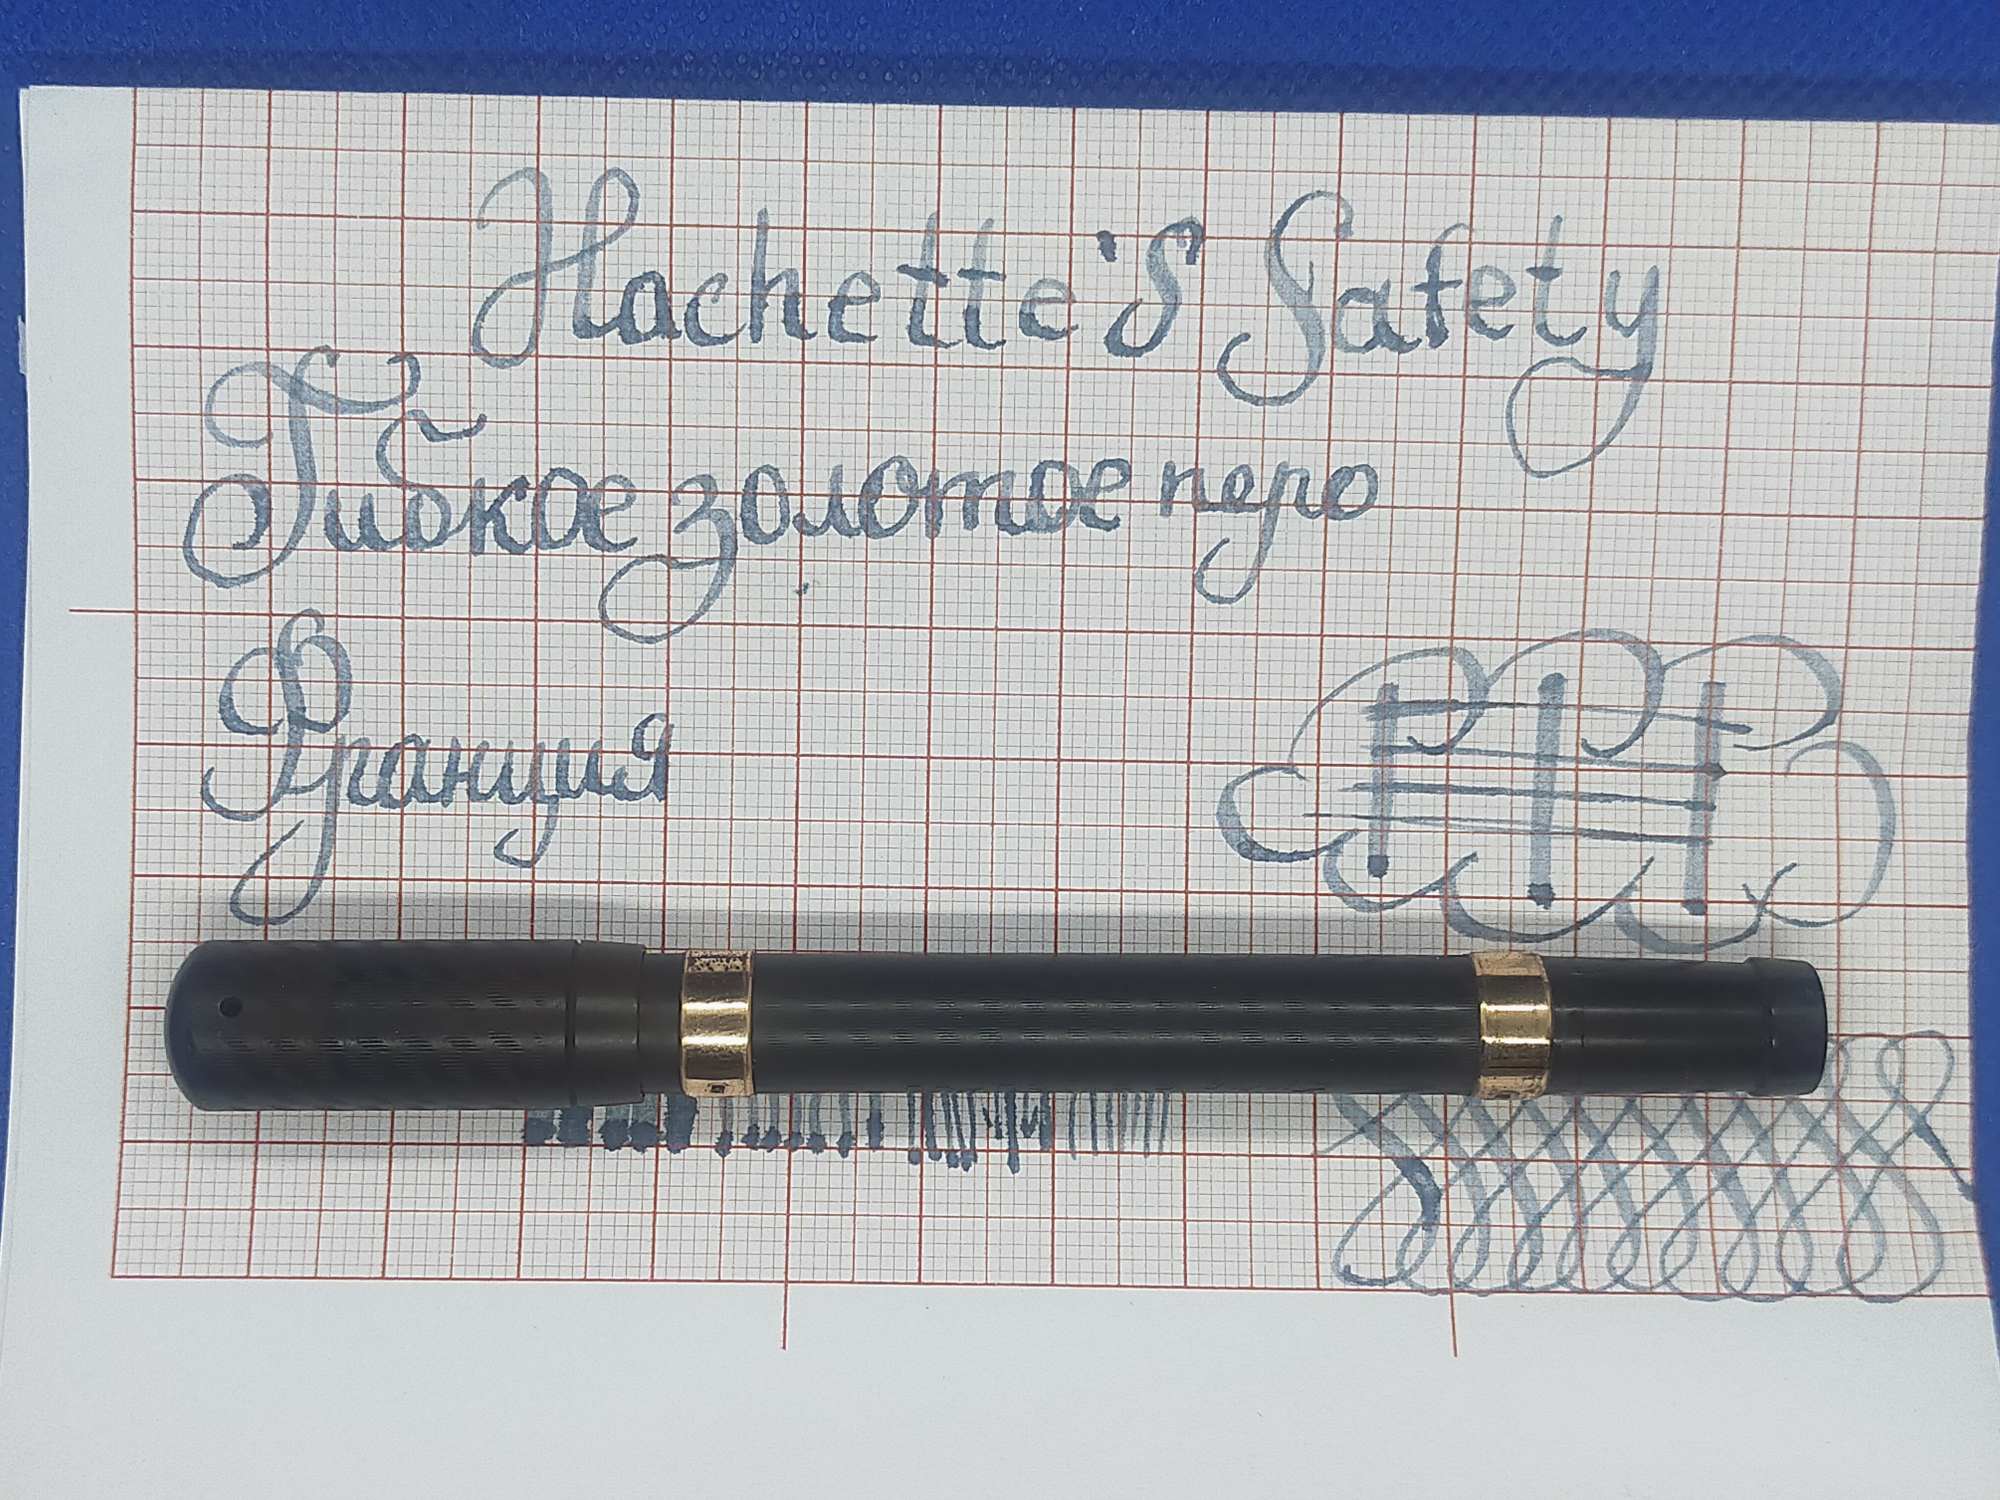 Hachette's Safety
Гибкое золотое перо
Франция